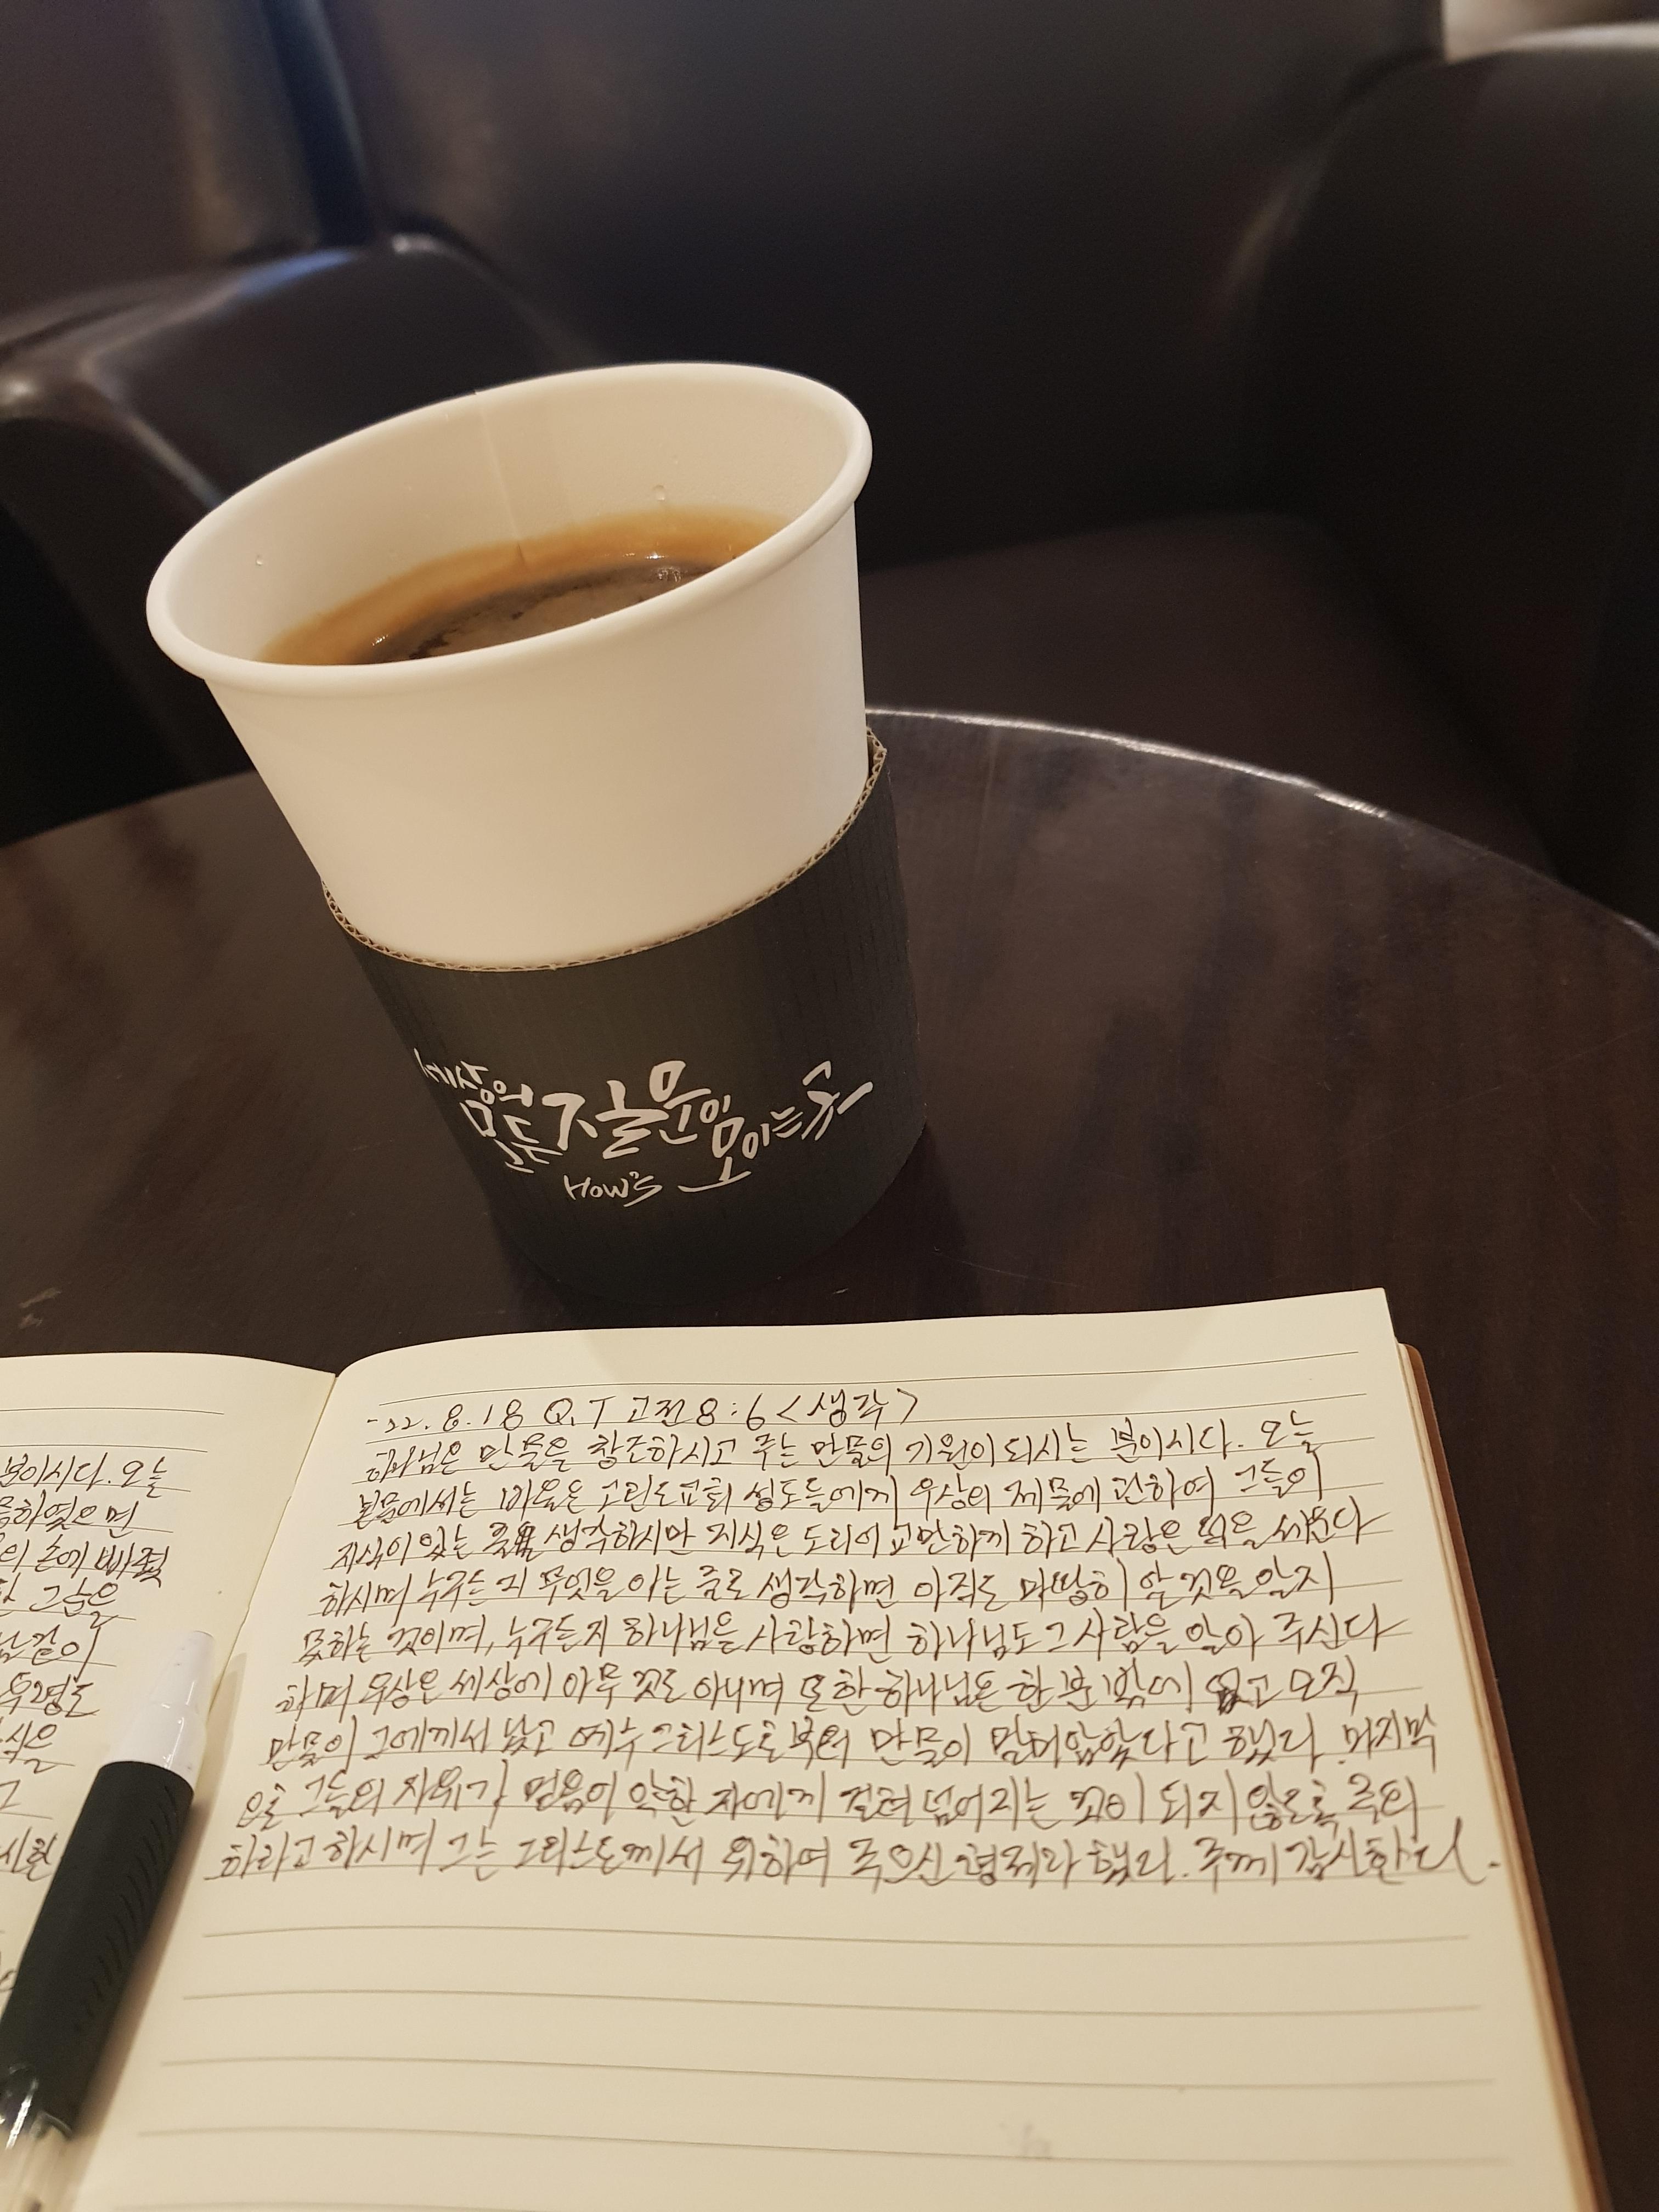 세상의
모든 질문이
모이는 곳
HOW's
-22. 8. 18 Q.T 고전 8:6 <생각>
하나님은 만물을 창조하시고 주는 만물의 기원이 되시는 분이시다. 오늘
본문에서는 바울은 고린도교회 성도들에게 우상의 제물에 관하여 그들이
지식이 있는 줄 생각하시만 지식은 도리어 교만하게 하고 사랑은 덕을 세운다
하시며 누구든지 무엇을 아는 줄로 생각하면 아직도 마땅히 알 것을 알지
못하는 것이며, 누구든지 하나님을 사랑하면 하나님도 그 사람을 알아 주신다
하며 우상은 세상에 아무 것도 아니며 또한 하나님은 한 분 밖에 없고 오직
만물이 그에게서 났고 예수 그리스도로 부터 만물이 말미암았다고 했다. 마지막
으로 그들의 자유가 믿음이 약한 자에게 걸려 넘어지는 것이 되지 않도록 주의
하라고 하시며 그는 그리스도께서 위하여 죽으신 형제라 했다. 주께 감사한다.
분이시다. 오늘
하였으면
의 손에 빠졌
그들을
같이
우경도
식은